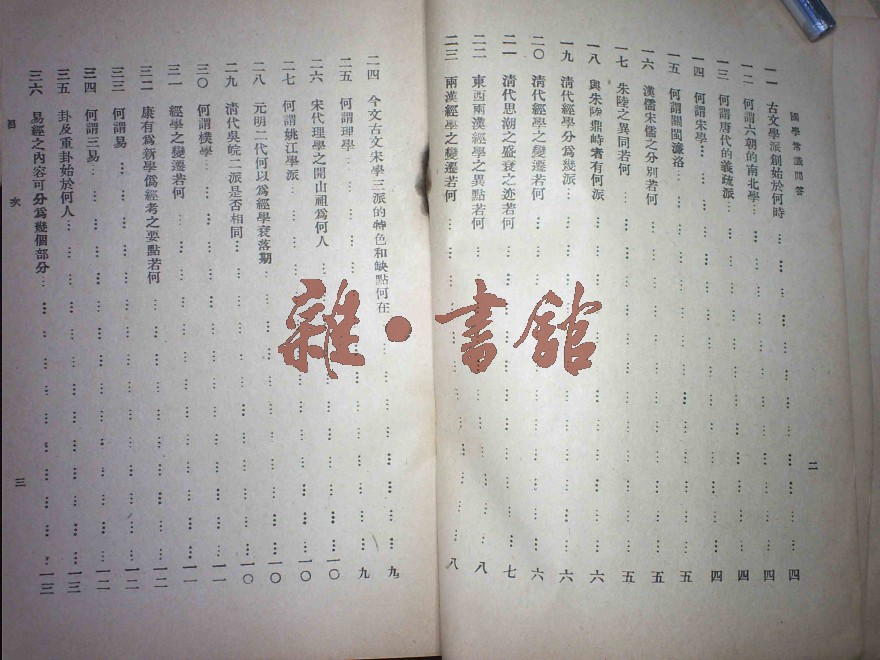 國學常識問答
二
一一 古文學派創始於何時………四
一二 何謂六朝的南北學………四
一三 何謂唐代的義疏派………四
一四 何謂宋學………四
一五 何謂關閩濂洛………五
一六 漢儒宋儒之分別若何………五
一七 朱陸之異同若何………五
一八 與朱陸鼎峙者有何派………六
一九 清代經學分爲幾派………六
二〇 清代經學之變遷若何………六
二一 清代思潮之盛衰之迹若何………七
二二 東西兩漢經學之異點若何………八
二三 兩漢經學之變遷若何………八
二四 今文古文宋學三派的特色和缺點何在………九
二五 何謂理學………九
二六 宋代理學之開山祖爲何人………一〇
二七 何謂姚江學派………一〇
二八 元明二代何以爲經學衰落期………一〇
二九 清代吳皖二派是否相同………一〇
三〇 何謂樸學………一一
三一 經學之變遷若何………一一
三二 康有爲新學僞經考之要點若何………一二
三三 何謂易………一二
三四 何謂三易………一二
三五 卦及重卦始於何人………一三
三六 易經之內容可分爲幾個部分………一三
目次
三
雜·書館